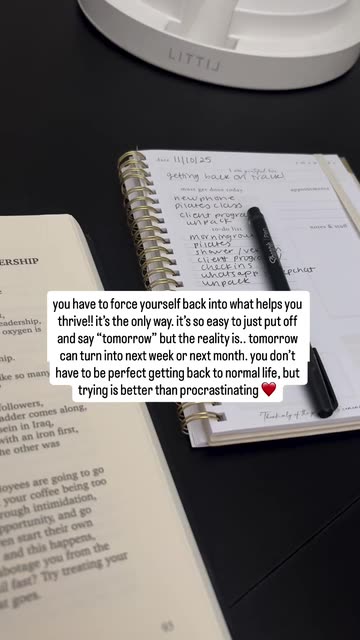 LITTIL
date 11/10/25
getting back on track!
must get done today
appointments
new phone
pilates class
client progra
unpack
to-do list
notes & stuff
pilates
client progra
check ins
whatsapp
unpack
you have to force yourself back into what helps you
thrive!! it's the only way. it's so easy to just put off
and say “tomorrow” but the reality is.. tomorrow
can turn into next week or next month. you don't
have to be perfect getting back to normal life, but
trying is better than procrastinating ❤️
DERSHIP
eadership,
oxygen is
like so many
followers,
adder comes along,
sein in Iraq,
with an iron first,
he other was
loyees are going to go
your coffee being too
rough intimidation,
pportunity, and go
en start their own
and this happens,
abotage you from the
il fast? Try treating your
at goes.
93